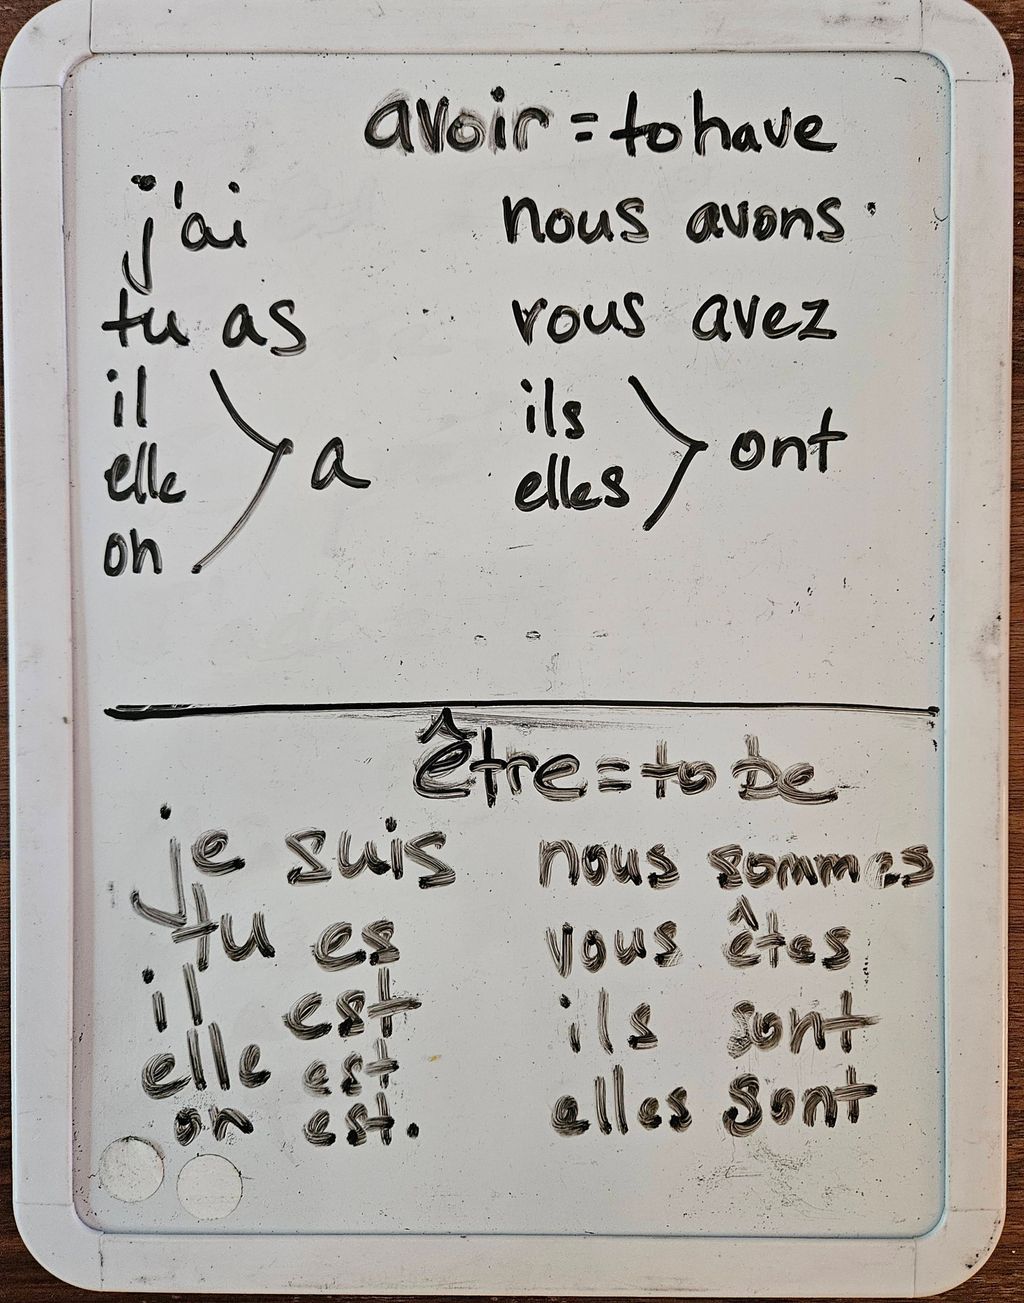 avoir = to have
j'ai nous avons
tu as vous avez
il ils
elle a elles ont
on
être = to be
je suis nous sommes
tu es vous êtes
il est ils sont
elle est elles sont
on est.